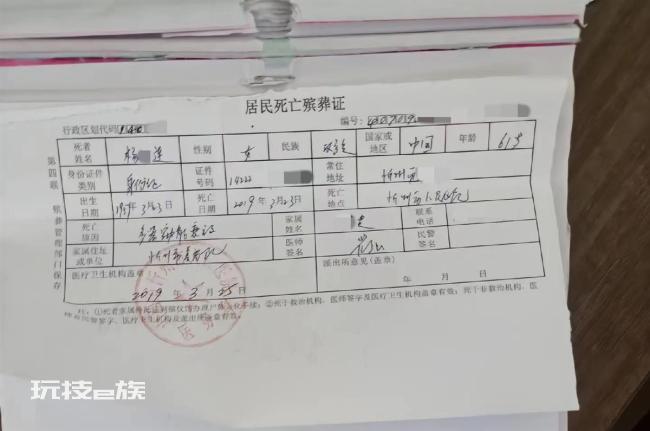 居民死亡殡葬证
行政区划代码: 编号:
死者姓名 杨 莲 性别 女 民族 汉族 国家或地区 中国 年龄 61岁
身份证件类别 身份证 证件号码 14222 常住地址 忻州市
出生日期 3月23日 死亡日期 2019年3月23日 死亡地点 忻州市人民医院
死亡原因 多器官功能衰竭 家属姓名 联系电话
家属住址或单位 忻州市 医师签名 民警签名
医疗卫生机构盖章: 派出所意见(盖章)
2019年3月25日 年 月 日
第四联 殡葬管理部门保存
注:①死者家属持此证到殡仪馆办理尸体火化手续;②死于救治机构,医师签字及医疗卫生机构盖章有效;死于非救治机构,医师及民警签字、医疗卫生机构及派出所盖章有效。
玩技e族